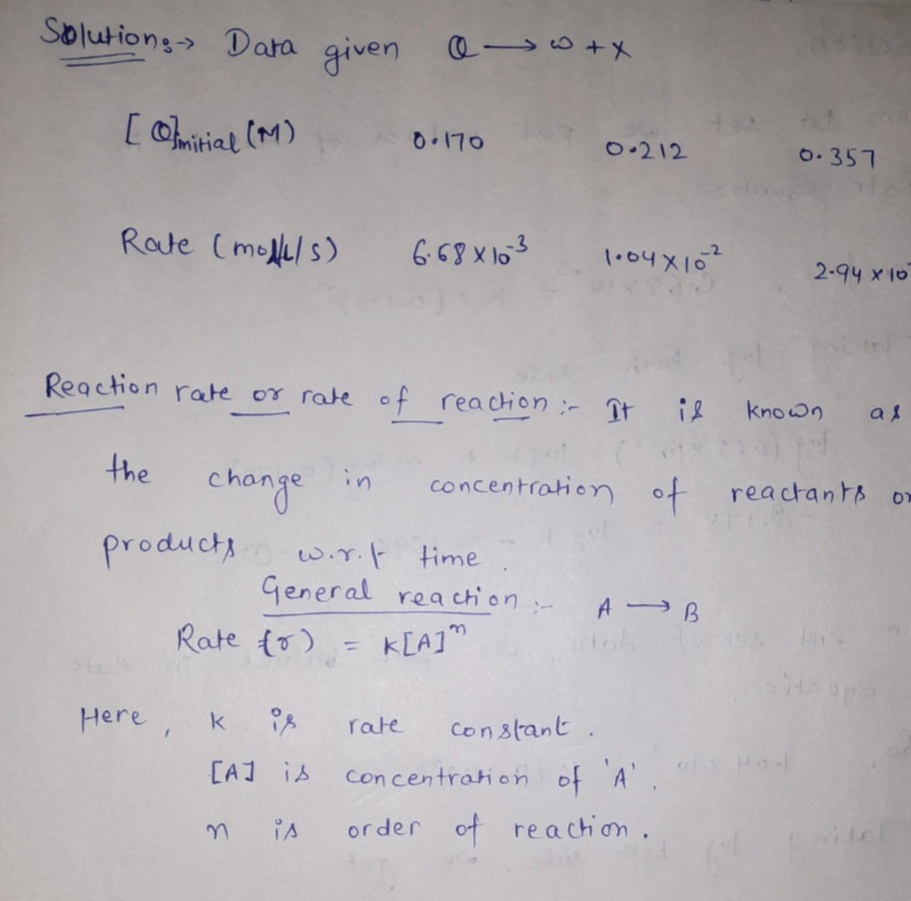 Solution:→ Data given Q ⟶ w + x
[Q]initial (M) 0.170 0.212 0.357
Rate (mol/L/s) 6.68 × 10⁻³ 1.04 × 10⁻² 2.94 × 10⁻
Reaction rate or rate of reaction :- It is known as
the change in concentration of reactants or
products w.r.t time.
General reaction :- A ⟶ B
Rate (r) = K[A]ⁿ
Here, K is rate constant.
[A] is concentration of 'A'.
n is order of reaction.